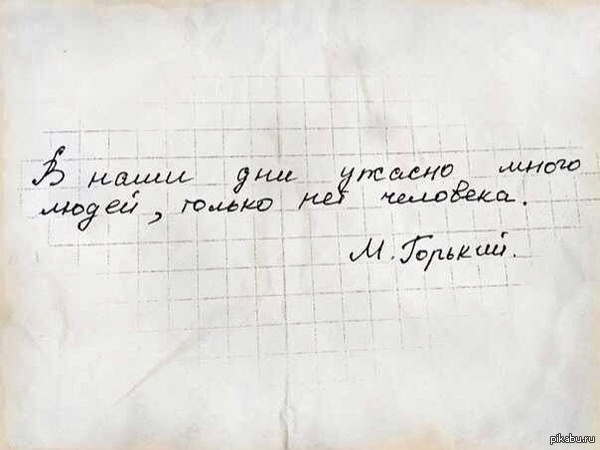 В наши дни ужасно много
людей, только нет человека.
М. Горький.
pikabu.ru